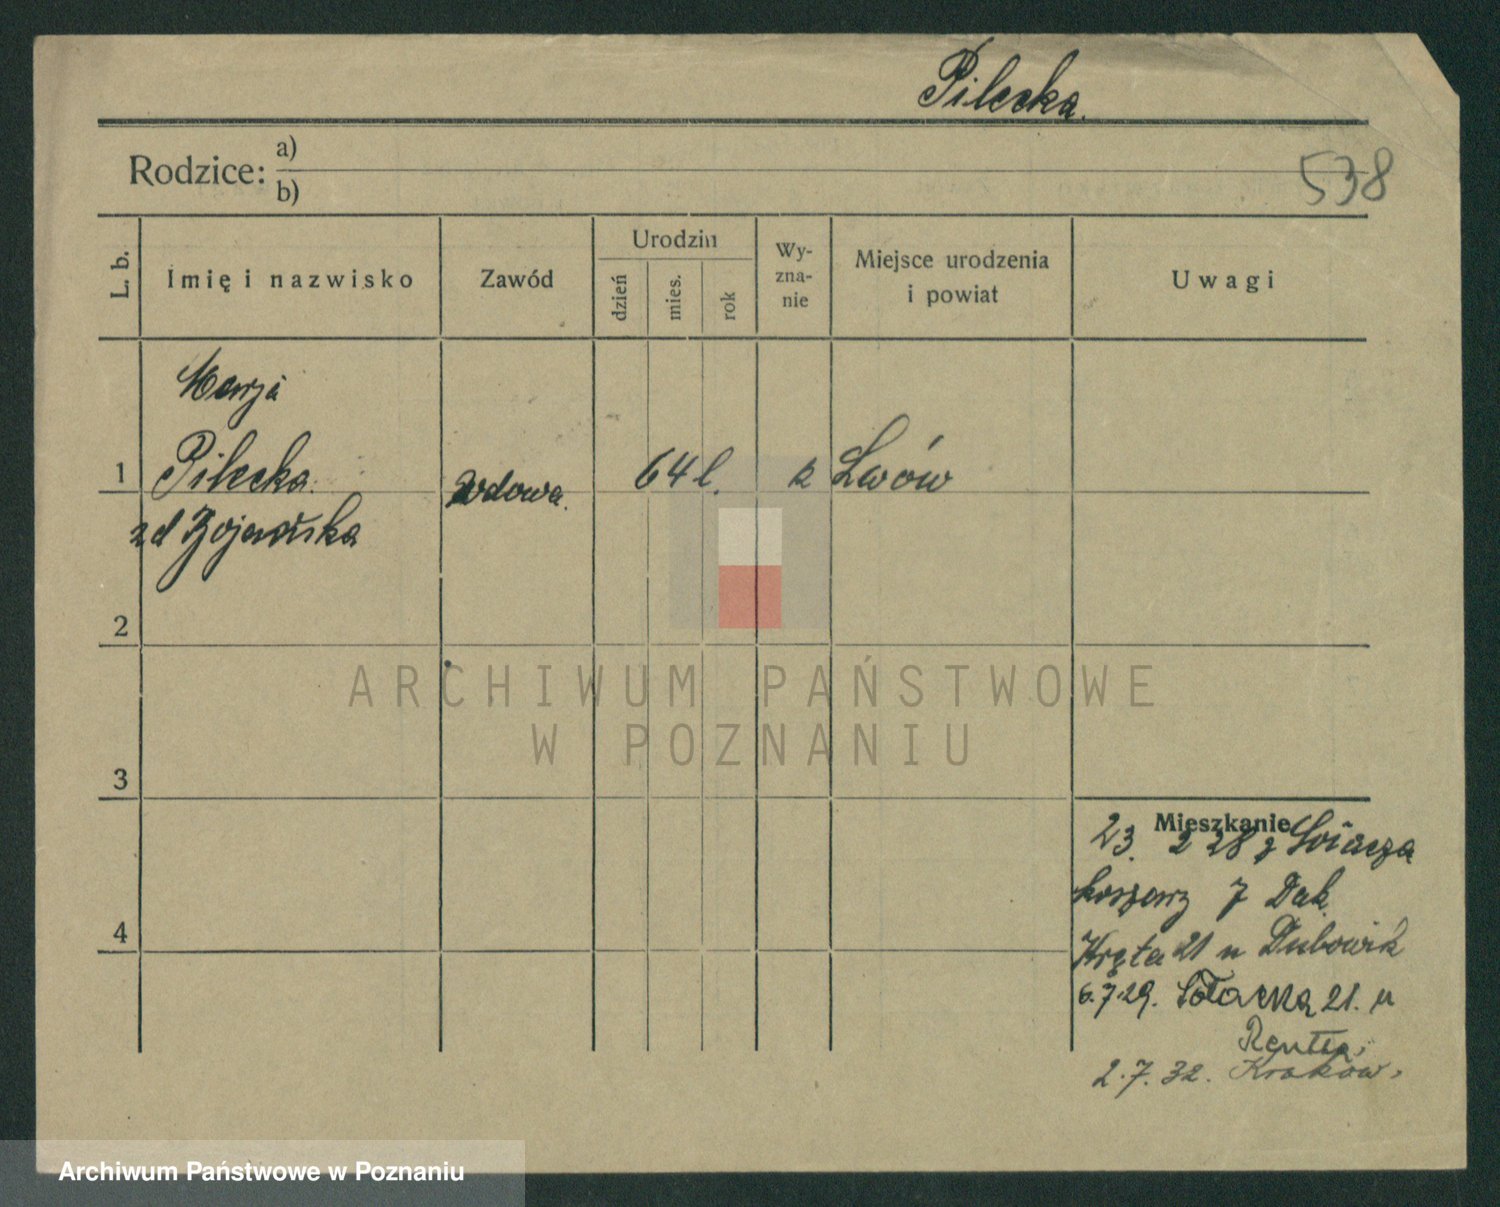 Pilecka.
Rodzice: a)
b)
538
L. b.
Imię i nazwisko
Zawód
Urodzin
dzień
mies.
rok
Wy-
zna-
nie
Miejsce urodzenia
i powiat
Uwagi
Marja
1 Pilecka. wdowa. 64 l. k Lwów
zd
2
3
4
Mieszkanie
23. 2 28 z
koszary 7 Dak.
Kręta 21 u Dubowik
6.7.29. 21. u
2.7.32. Kraków.
ARCHIWUM PAŃSTWOWE
W POZNANIU
Archiwum Państwowe w Poznaniu